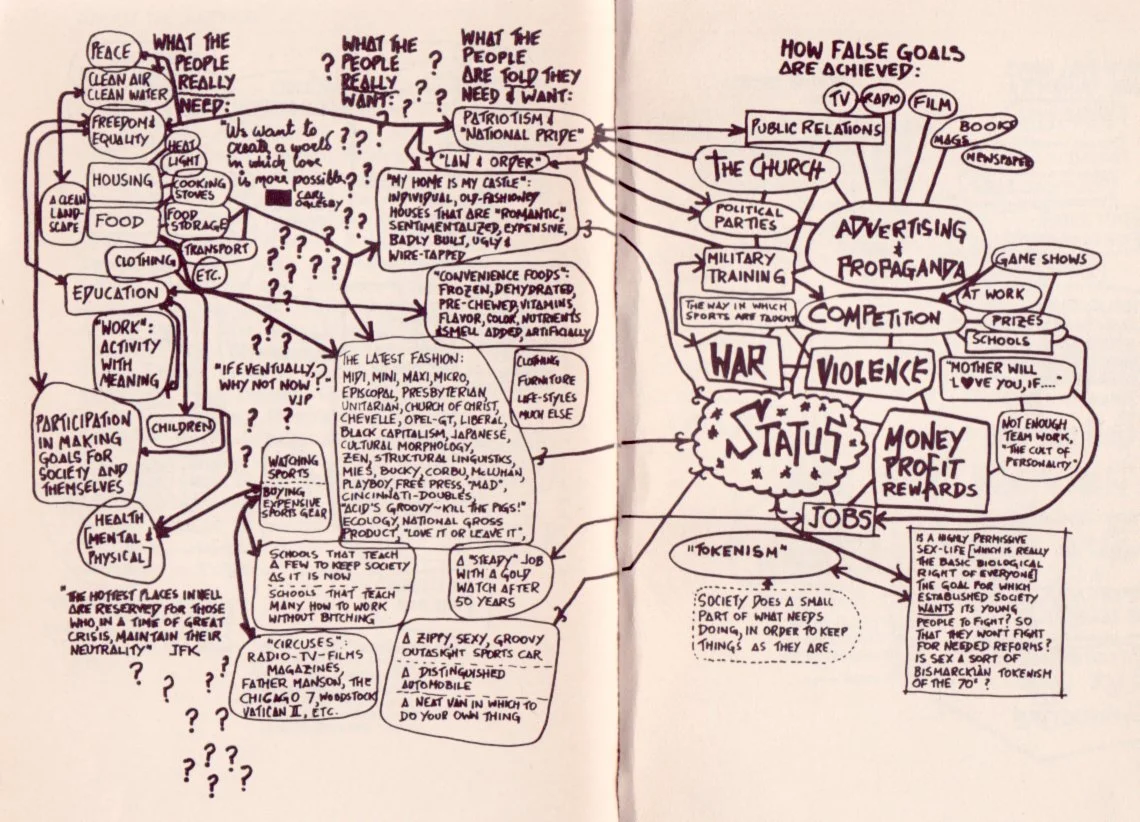 WHAT THE
PEOPLE
REALLY
NEED:
PEACE
CLEAN AIR
CLEAN WATER
FREEDOM &
EQUALITY
HEAT
LIGHT
HOUSING
COOKING
STOVES
A CLEAN
LAND-
SCAPE
FOOD
FOOD
STORAGE
TRANSPORT
ETC.
CLOTHING
EDUCATION
"WORK":
ACTIVITY
WITH
MEANING
PARTICIPATION
IN MAKING
GOALS FOR
SOCIETY AND
THEMSELVES
CHILDREN
HEALTH
[MENTAL &
PHYSICAL]
"THE HOTTEST PLACES IN HELL
ARE RESERVED FOR THOSE
WHO, IN A TIME OF GREAT
CRISIS, MAINTAIN THEIR
NEUTRALITY" JFK
? ?
? ?
? ?
? ?
? ? ?
? ?
WHAT THE
PEOPLE
REALLY
WANT:
"We want to
create a world
in which love
is more possible
CARL
OGLESBY
"IF EVENTUALLY,
WHY NOT NOW?"
VIP
WHAT THE
PEOPLE
ARE TOLD THEY
NEED & WANT:
PATRIOTISM &
"NATIONAL PRIDE"
"LAW & ORDER"
"MY HOME IS MY CASTLE":
INDIVIDUAL, OLD-FASHIONEY
HOUSES THAT ARE "ROMANTIC",
SENTIMENTALIZED, EXPENSIVE,
BADLY BUILT, UGLY &
WIRE-TAPPED
"CONVENIENCE FOODS":
FROZEN, DEHYDRATED,
PRE-CHEWED, VITAMINS,
FLAVOR, COLOR, NUTRIENTS
& SMELL ADDED, ARTIFICIALLY
THE LATEST FASHION:
MIDI, MINI, MAXI, MICRO,
EPISCOPAL, PRESBYTERIAN,
UNITARIAN, CHURCH OF CHRIST,
CHEVELLE, OPEL-GT, LIBERAL,
BLACK CAPITALISM, JAPANESE,
CULTURAL MORPHOLOGY,
ZEN, STRUCTURAL LINGUISTICS,
MIES, BUCKY, CORBU, McLUHAN,
PLAYBOY, FREE PRESS, "MAD",
CINCINNATI-DOUBLES,
"ACID'S GROOVY-KILL THE PIGS!"
ECOLOGY, NATIONAL GROSS
PRODUCT, "LOVE IT OR LEAVE IT",
CLOTHING
FURNITURE
LIFE-STYLES
MUCH ELSE
WATCHING
SPORTS
BUYING
EXPENSIVE
SPORTS GEAR
SCHOOLS THAT TEACH
A FEW TO KEEP SOCIETY
AS IT IS NOW
SCHOOLS THAT TEACH
MANY HOW TO WORK
WITHOUT BITCHING
A "STEADY" JOB
WITH A GOLD
WATCH AFTER
50 YEARS
"CIRCUSES":
RADIO-TV-FILMS
MAGAZINES,
FATHER MANSON, THE
CHICAGO 7, WOODSTOCK
VATICAN II, ETC.
A ZIPPY, SEXY, GROOVY
OUTASIGHT SPORTS CAR
A DISTINGUISHED
AUTOMOBILE
A NEAT VAN IN WHICH TO
DO YOUR OWN THING
HOW FALSE GOALS
ARE ACHIEVED:
TV
RADIO
FILM
BOOKS
MAGS
NEWSPAPER
PUBLIC RELATIONS
THE CHURCH
POLITICAL
PARTIES
ADVERTISING
&
PROPAGANDA
MILITARY
TRAINING
GAME SHOWS
AT WORK
PRIZES
SCHOOLS
THE WAY IN WHICH
SPORTS ARE TAUGHT
COMPETITION
WAR
VIOLENCE
"MOTHER WILL
L♥VE YOU, IF...."
STATUS
MONEY
PROFIT
REWARDS
NOT ENOUGH
TEAM WORK,
"THE CULT OF
PERSONALITY"
JOBS
"TOKENISM"
SOCIETY DOES A SMALL
PART OF WHAT NEEDS
DOING, IN ORDER TO KEEP
THINGS AS THEY ARE.
IS A HIGHLY PERMISSIVE
SEX-LIFE [WHICH IS REALLY
THE BASIC BIOLOGICAL
RIGHT OF EVERYONE]
THE GOAL FOR WHICH
ESTABLISHED SOCIETY
WANTS ITS YOUNG
PEOPLE TO FIGHT? SO
THAT THEY WON'T FIGHT
FOR NEEDED REFORMS?
IS SEX A SORT OF
BISMARCKIAN TOKENISM
OF THE 70'?